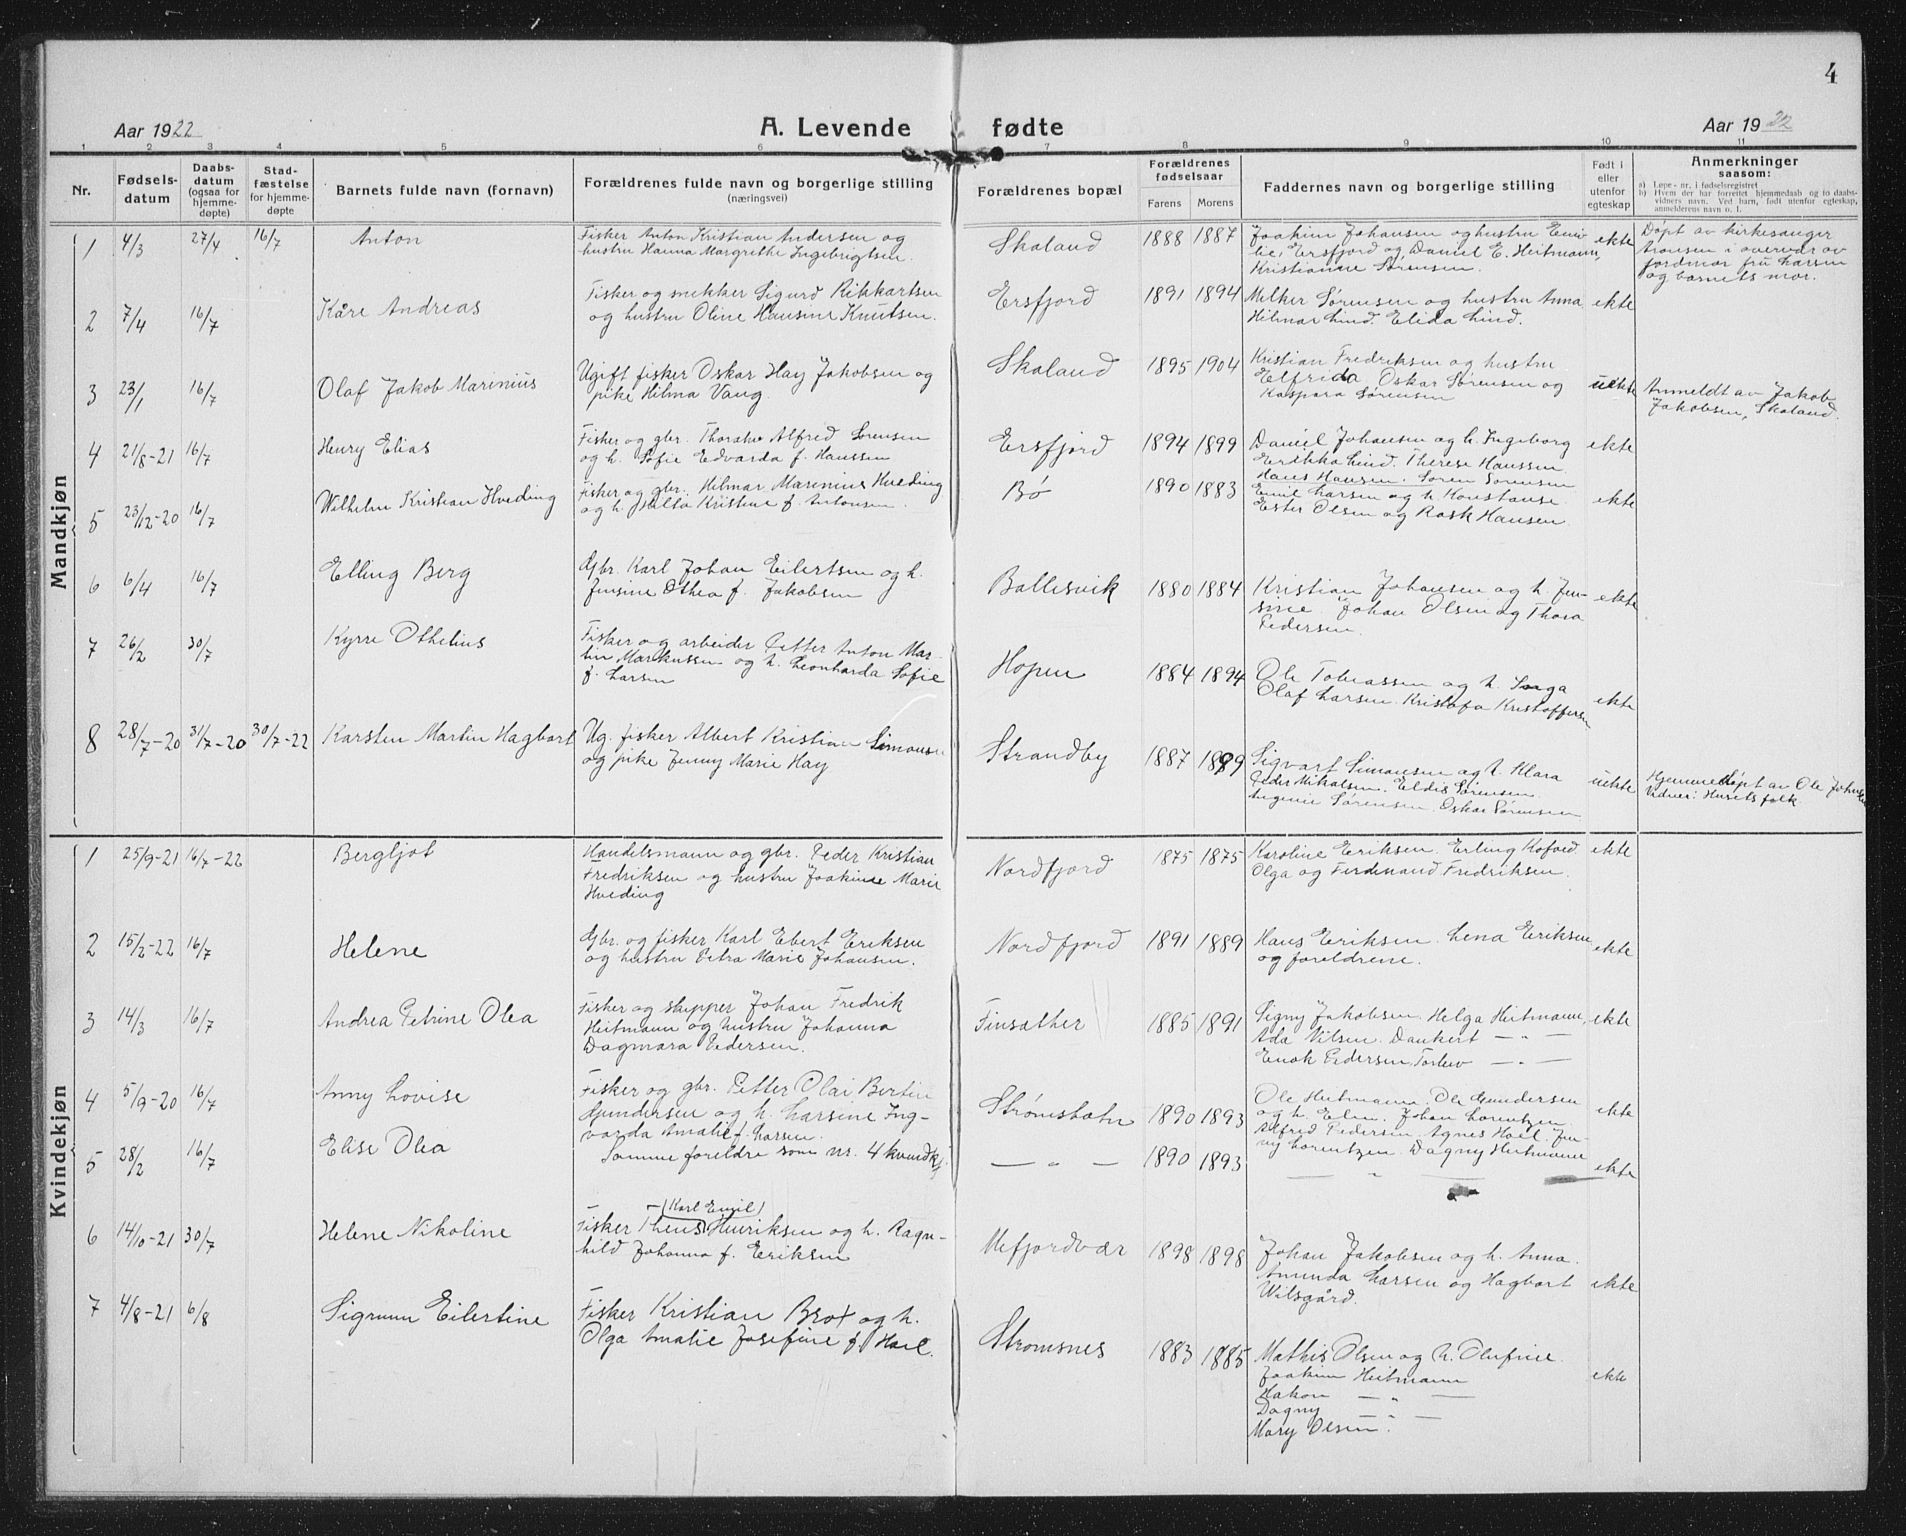 4
Aar 1922
A. Levende fødte
Aar 1922
1 2 3 4 5 6 7 8 9 10 11
Nr.
Fødsels-
datum
Daabs-
datum
(ogsaa for
hjemme-
døpte)
Stad-
fæstelse
for hjemme-
døpte
Barnets fulde navn (fornavn)
Forældrenes fulde navn og borgerlige stilling
(næringsvei)
Forældrenes bopæl
Forældrenes
fødselsaar
Farens Morens
Faddernes navn og borgerlige stilling
Født i
eller
utenfor
egteskap
Anmerkninger
saasom:
a) Løpe-nr. i fødselsregistret
b) Hvem der har forrettet hjemmedaab og to daabs-
vidners navn. Ved barn, født utenfor egteskap,
anmelderens navn o. l.
Mandkjøn
1 4/3 27/4 16/7 Anton
Fisker Anton Kristian Andersen og
hustru Hanna Margrethe Ingebrigtsen.
Skaland 1888 1887
Joakim Johansen og hustru Emi-
lie, Ersfjord og Daniel E. Heitmann,
Kristianne Sørensen.
ekte
Døpt av kirkesanger
Aronsen i overvær av
jordmor fru Larsen
og barnets mor.
2 7/4 16/7 Kåre Andreas
Fisker og snekker Sigurd Rikkartsen
og hustru Oline Hansine Knutsen.
Ersfjord 1891 1894
Melker Sørensen og hustru Anna
Hilmar Lind. Elida Lind.
ekte
3 23/1 16/7 Olaf Jakob Marinius
Ugift fisker Oskar Hay Jakobsen og
pike Hilma Vang.
Skaland 1895 1904
Kristian Fredriksen og hustru
Elfrida Oskar Sørensen og
Kaspara Sørensen
uekte
Anmeldt av Jakob
Jakobsen, Skaland.
4 21/8-21 16/7 Henry Elias
Fisker og gbr. Thoralv Alfred Sørensen
og h. Sofie Edvarda f. Hanssen
Ersfjord 1894 1899
Daniel Johansen og h. Ingeborg
Erikka Lind. Therese Hanssen
Hans Hansen. Søren Sørensen
ekte
5 23/12-20 16/7 Wilhelm Kristian Hveding
Fisker og gbr. Hilmar Marinius Hveding
og h. Hilta Kristine f. Antonsen.
Bø 1890 1883
Emil Larsen og h. Konstanse.
Ester Olsen og Rask Hansen.
ekte
6 6/4 16/7 Elling Berg
Gbr. Karl Johan Eilertsen og h.
Jensine Othea f. Jakobsen
Ballesvik 1880 1884
Kristian Johansen og h. Jen-
sine. Johan Olsen og Thora
Pedersen.
ekte
7 26/2 30/7 Kyrre Othelius
Fisker og arbeider Petter Anton Mar-
tin Markussen og h. Leonharda Sofie
f. Larsen
Hopen 1884 1894
Ole Tobiassen og h. Inga
Olaf Larsen. Kristofa Kristoffersen
ekte
8 28/7-20 31/7-20 30/7-22 Karsten Martin Hagbart
Ug. fisker Albert Kristian Simonsen
og pike Jenny Marie Hay
Strandby 1887 1899
Sigvart Simonsen og h. Klara
Peder Mikalsen. Eldis Sørensen.
Eugenie Sørensen. Oskar Sørensen
uekte
Hjemmedøpt av Ole Johnsen
Vidner: Husets folk.
Kvindekjøn
1 25/9-21 16/7-22 Bergljot
Handelsmann og gbr. Peder Kristian
Fredriksen og hustru Joakine Marie
Hveding
Nordfjord 1875 1875
Karoline Eriksen. Erling Kofoed
Olga og Ferdinand Fredriksen.
ekte
2 15/2-22 16/7 Helene
Gbr. og fisker Karl Ebert Eriksen
og hustru Petra Marie Johansen.
Nordfjord 1891 1889
Hans Eriksen. Lena Eriksen
og foreldrene.
ekte
3 14/3 16/7 Andrea Petrine Olea
Fisker og skipper Johan Fredrik
Heitmann og hustru Johanna
Dagmara Pedersen.
Finsæther 1885 1891
Signy Jakobsen. Helga Heitmann,
Ada Nilsen. Dankert — " —
Enok Pedersen, Torleiv — " —
ekte
4 5/9-20 16/7 Anny Lovise
Fisker og gbr. Petter Olai Bertin
Gundersen og h. Larsine Ing-
varda Amalie f. Larsen.
Strømsbotn 1890 1893
Ole Heitmann. Ole Gundersen
og h. Elen. Johan Lorentzen
Alfred Pedersen. Agnes Hoel. Jen-
ny Lorentzen. Dagny Heitmann
ekte
5 28/2 16/7 Elise Olea
Samme foreldre som nr. 4 kvindkj.
— " — 1890 1893
— " —
ekte
6 14/10-21 30/7 Helene Nikoline
(Karl Emil)
Fisker Thens Henriksen og h. Ragn-
hild Johanna f. Eriksen
Mefjordvær 1898 1898
Johan Jakobsen og h. Anna.
Amunda Larsen og Hagbart
Wilsgård.
ekte
7 4/8-21 6/8 Sigrunn Eilertine
Fisker Kristian Brox og h.
Olga Amalie Josefine f. Hoel.
Stromsnes 1883 1885
Mathis Olsen og h. Olufine.
Joakim Heitmann
Hakon — " —
Dagny — " —
Mary Olsen.
ekte